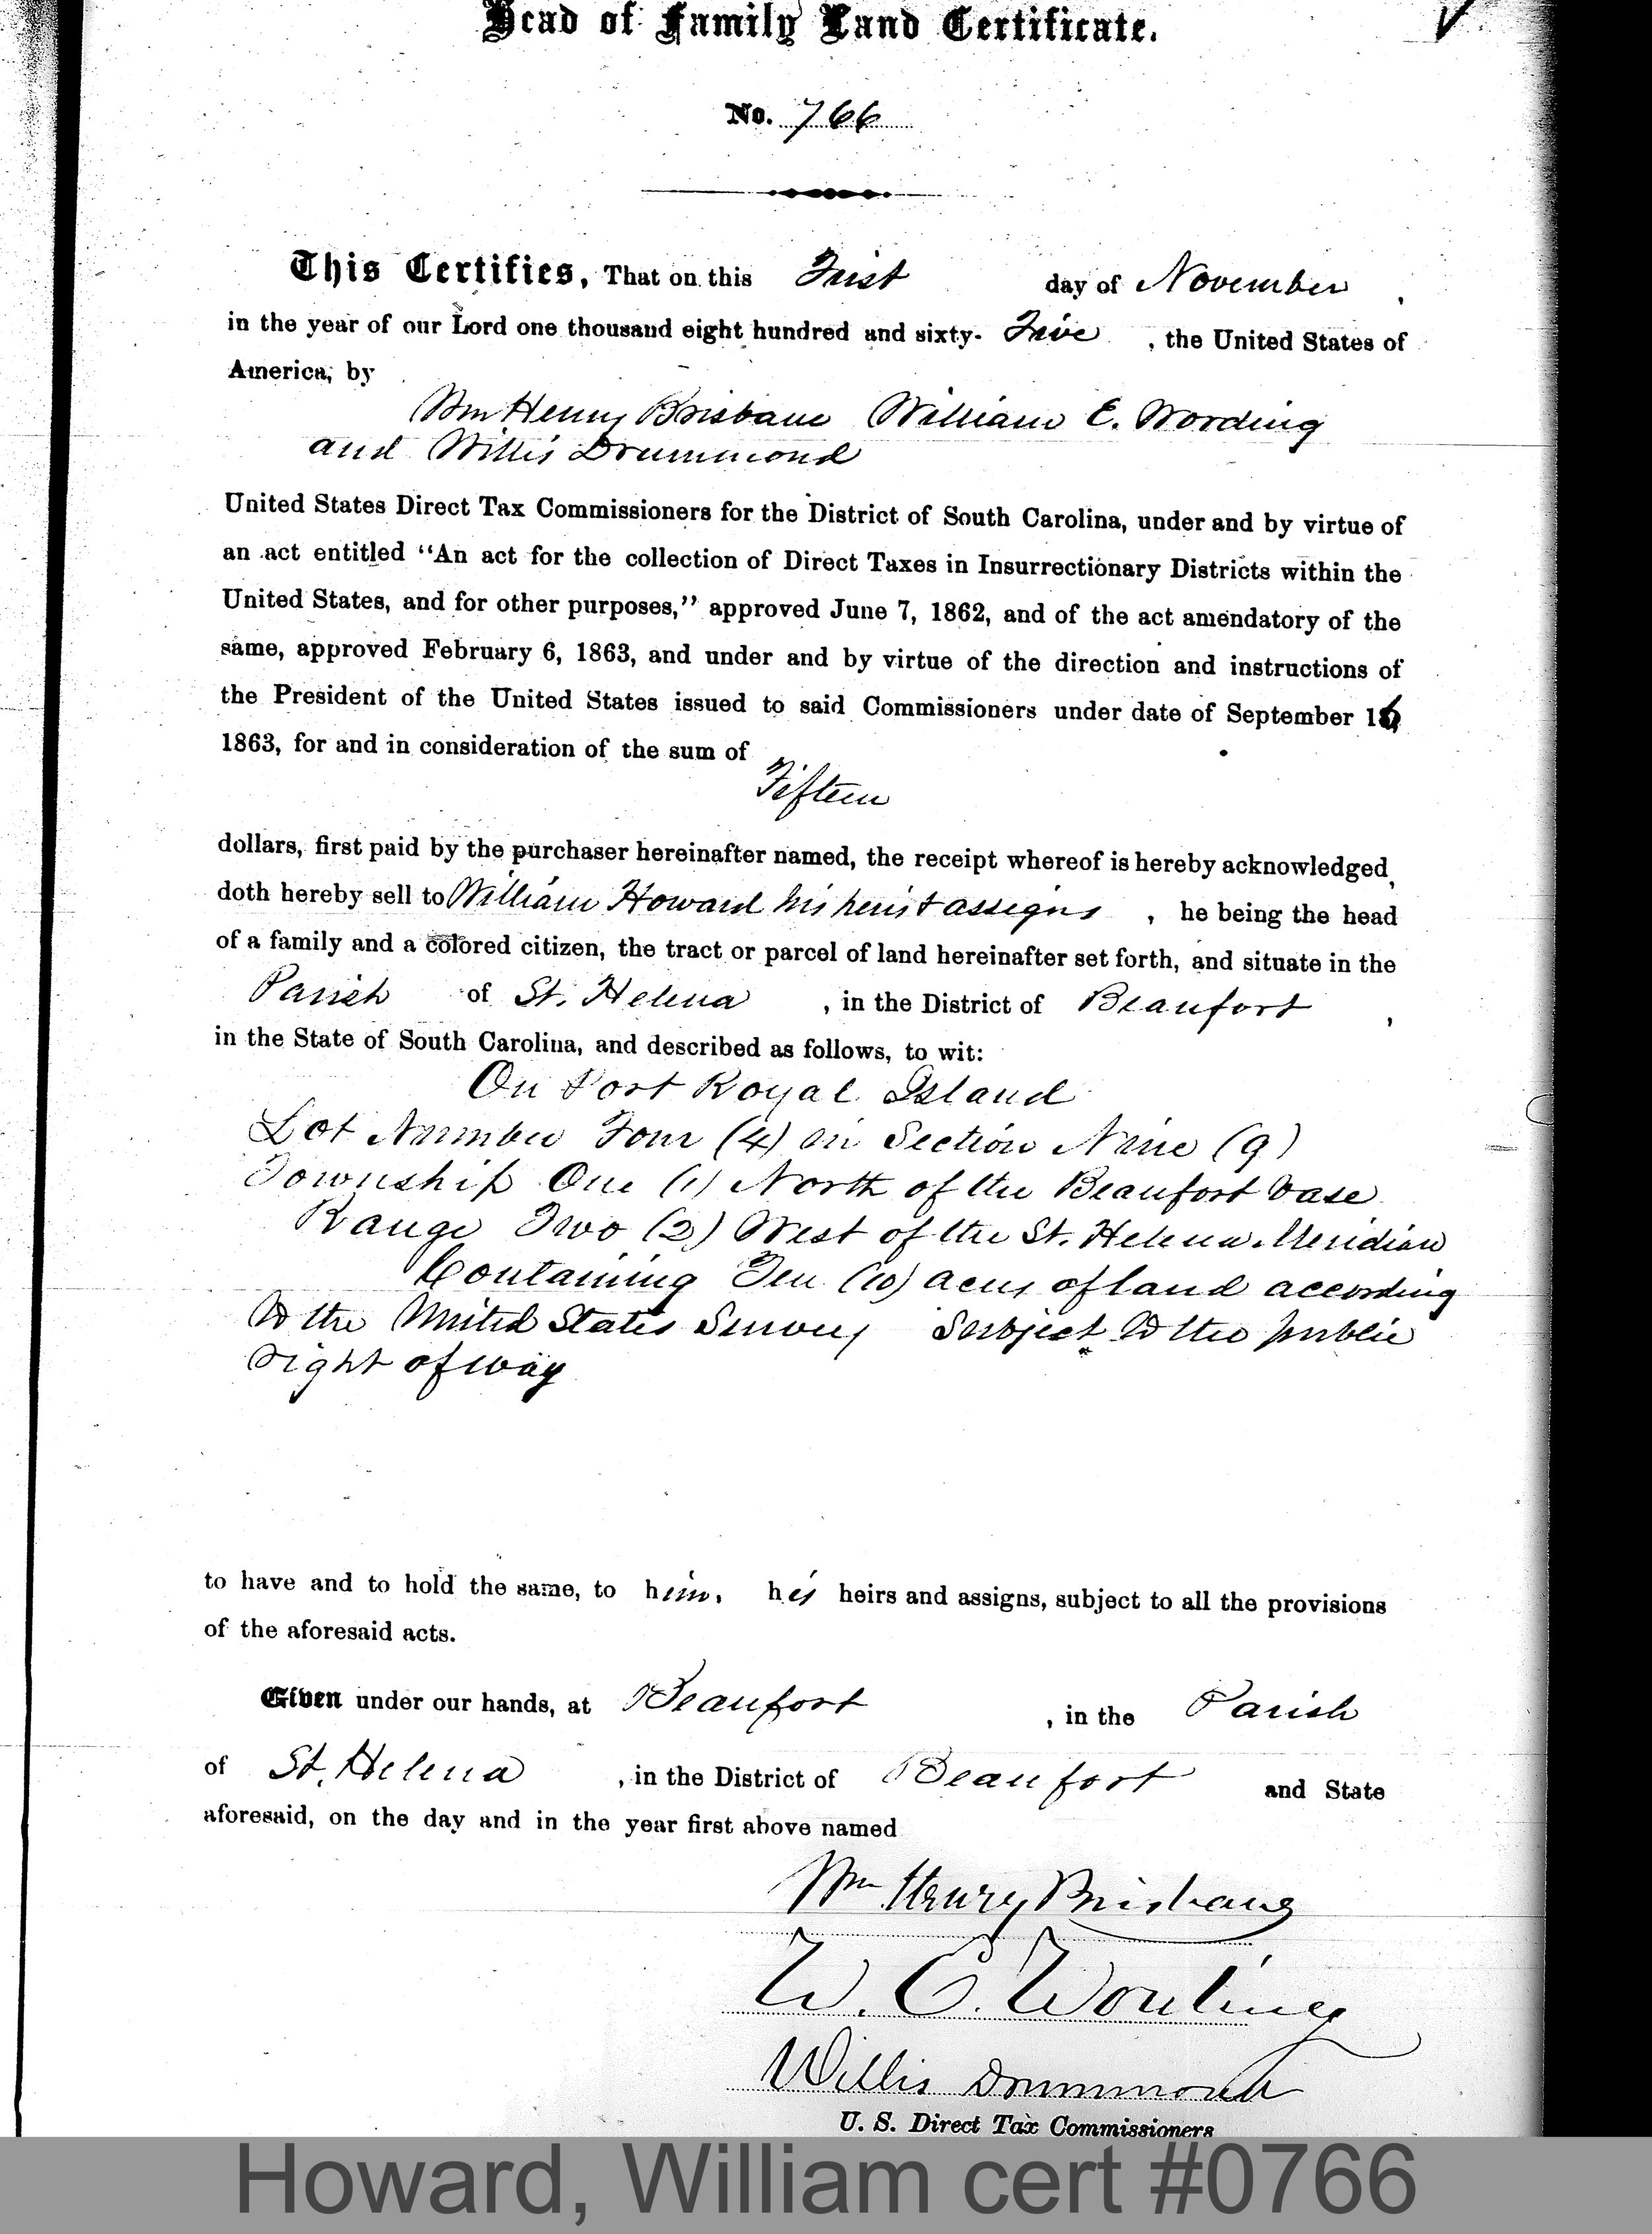 Head of Family Land Certificate.
No. 766
This Certifies, That on this First day of November,
in the year of our Lord one thousand eight hundred and sixty-Five, the United States of
America, by
Wm Henry Brisbane William E. Wording
and Willis Drummond
United States Direct Tax Commissioners for the District of South Carolina, under and by virtue of
an act entitled "An act for the collection of Direct Taxes in Insurrectionary Districts within the
United States, and for other purposes," approved June 7, 1862, and of the act amendatory of the
same, approved February 6, 1863, and under and by virtue of the direction and instructions of
the President of the United States issued to said Commissioners under date of September 16
1863, for and in consideration of the sum of
Fifteen
dollars, first paid by the purchaser hereinafter named, the receipt whereof is hereby acknowledged,
doth hereby sell to William Howard his heirs & assigns, he being the head
of a family and a colored citizen, the tract or parcel of land hereinafter set forth, and situate in the
Parish of St. Helena, in the District of Beaufort,
in the State of South Carolina, and described as follows, to wit:
On Port Royal Island
Lot Number Four (4) in Section Nine (9)
Township One (1) North of the Beaufort base
Range Two (2) West of the St. Helena Meridian
Containing Ten (10) acres of land according
to the United States Survey Subject to the public
right of way
to have and to hold the same, to him, his heirs and assigns, subject to all the provisions
of the aforesaid acts.
Given under our hands, at Beaufort, in the Parish
of St. Helena, in the District of Beaufort and State
aforesaid, on the day and in the year first above named
Wm Henry Brisbane
W. E. Wording
Willis Drummond
U. S. Direct Tax Commissioners
Howard, William cert #0766